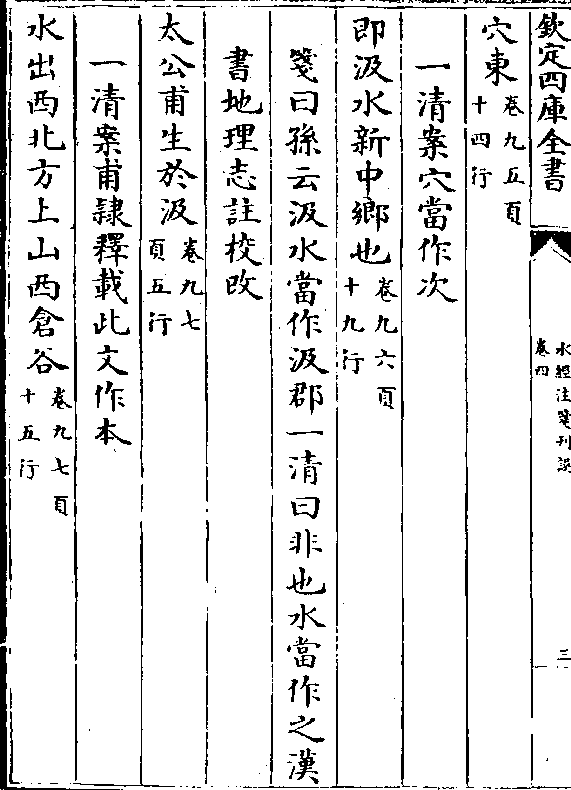 欽定四庫全書
水經注箋刊誤
卷四
三
穴東卷九五頁十四行
一清案穴當作次
即汲水新中鄉也卷九六頁十九行
箋曰孫云汲水當作汲郡一清曰非也水當作之漢
書地理志註校改
太公甫生於汲卷九七頁五行
一清案甫隷釋載此文作本
水出西北方上山西倉谷卷九七頁十五行